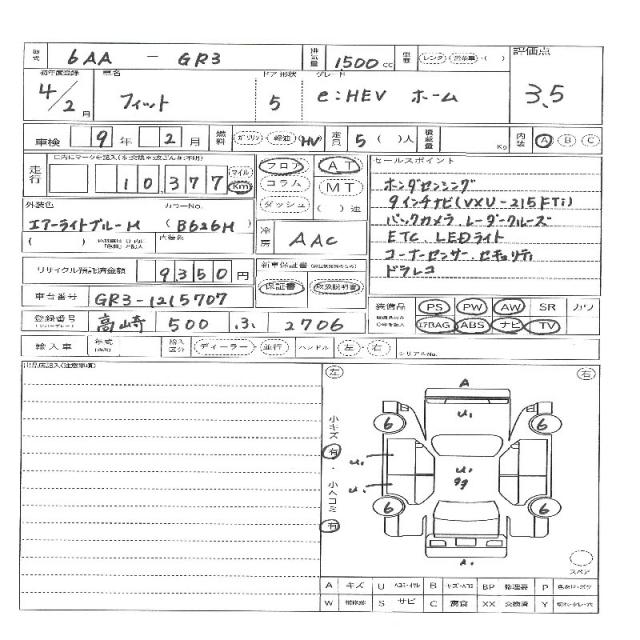 型式 6AA - GR3 排気量 1500 cc 型番 レンタ ( ) 評価点
初年度登録 車名 ドア形状 グレード
4/2 月 フィット 5 e:HEV ホーム 3.5
車検 9 年 2 月 燃料 ガソリン 軽油 (HV) 定員 5 ( )人 積載量 Kg 内装 A B C
走行 10,377 マイル Km フロア AT セールスポイント
コラム MT ホンダセンシング
ダッシュ ( )速 9インチナビ(VXU-215FTi)
外装色 カラーNo.
エアーライトブルーM (B626M) 冷房 AAC バックカメラ、レーダークルーズ
( ) 内装色 ETC、LEDライト
コーナーセンサー、セキュリティ
ドラレコ
リサイクル預託済金額 9350 円 新車保証書
保証書 取扱説明書
車台番号 GR3-1215707 装備品 PS PW AW SR カワ
登録番号 高崎 500 、3、 2706 ABS ナビ TV
輸入車 年式 輸入区分 ディーラー・並行 ハンドル 左・右 シリアルNo.
左 右
A
U1
6 6
小キズ 有・小ヘコミ 有
U1 U1
gg
U1
6 6
A1
スペア
A キズ U B BP 修理跡 P
W S サビ C 腐食 XX 交換済 Y